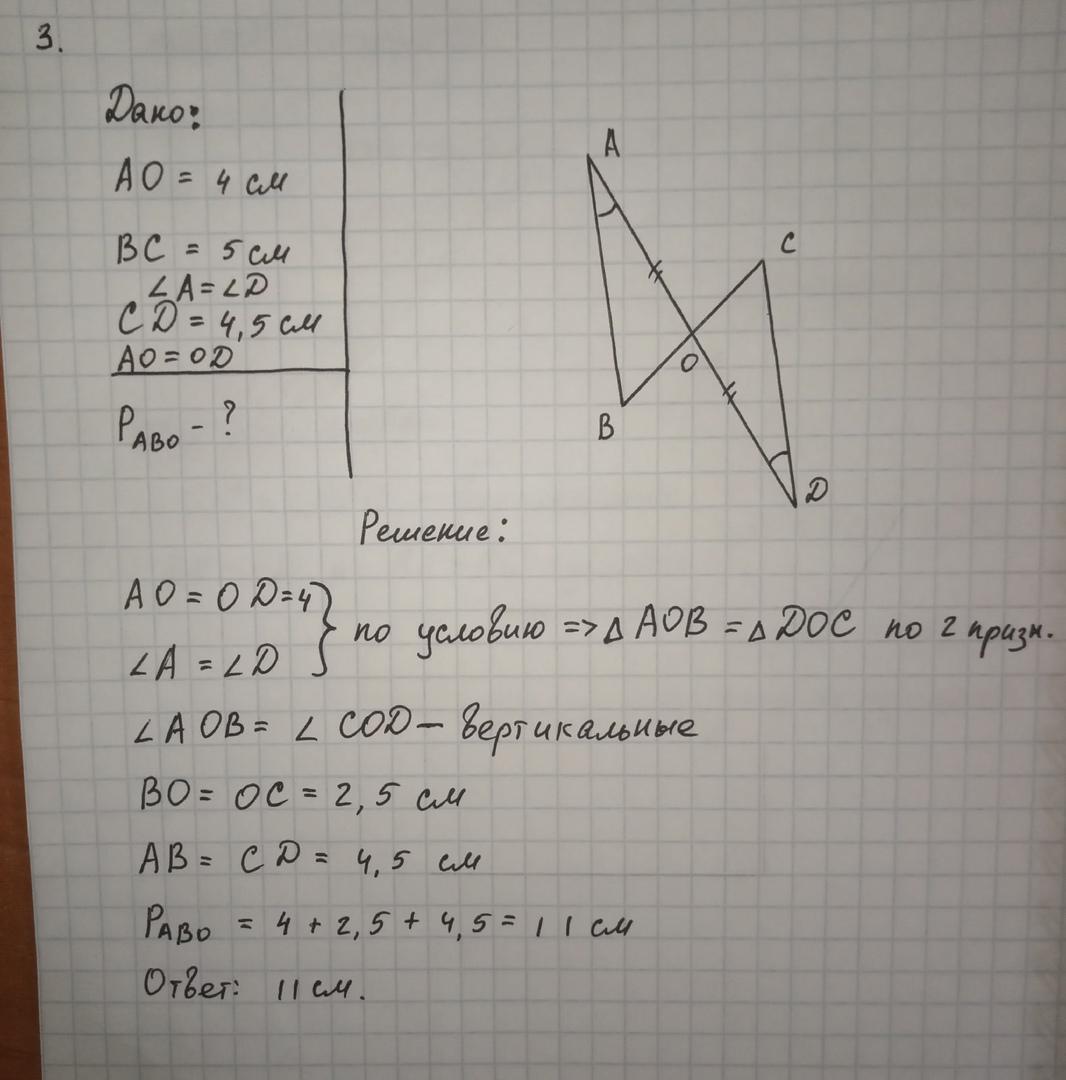 3.
Дано:
AO = 4 см
BC = 5 см
∠A = ∠D
CD = 4,5 см
AO = OD
P_ABO - ?
A
C
O
B
D
Решение:
AO = OD = 4
∠A = ∠D } по условию => △ AOB = △ DOC по 2 призн.
∠AOB = ∠ COD — вертикальные
BO = OC = 2,5 см
AB = CD = 4,5 см
P_ABO = 4 + 2,5 + 4,5 = 11 см
Ответ: 11 см.